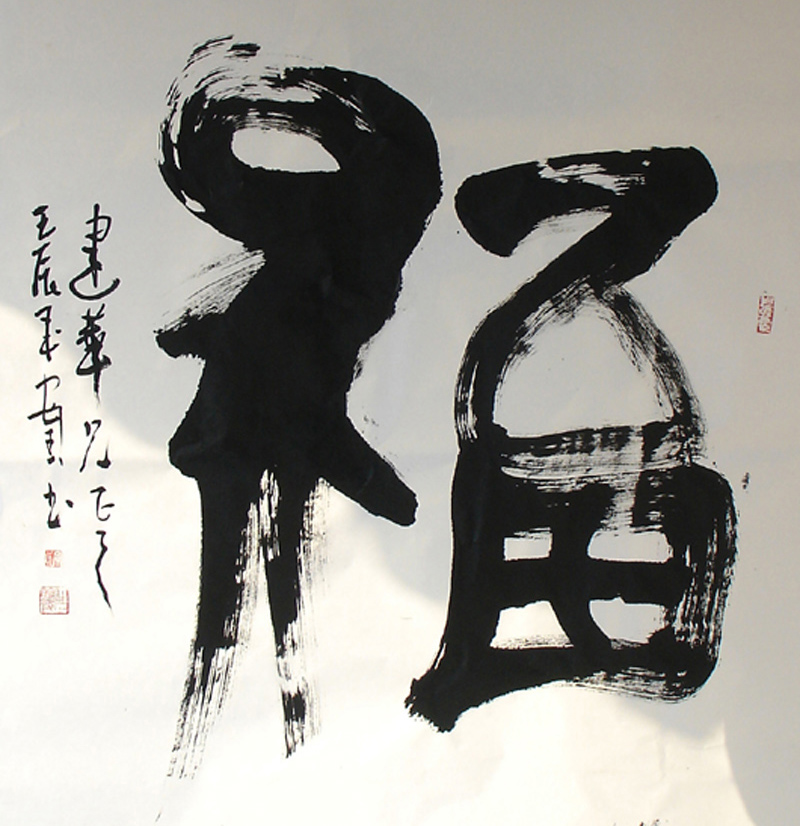 福
建華兄正之
壬辰年
書